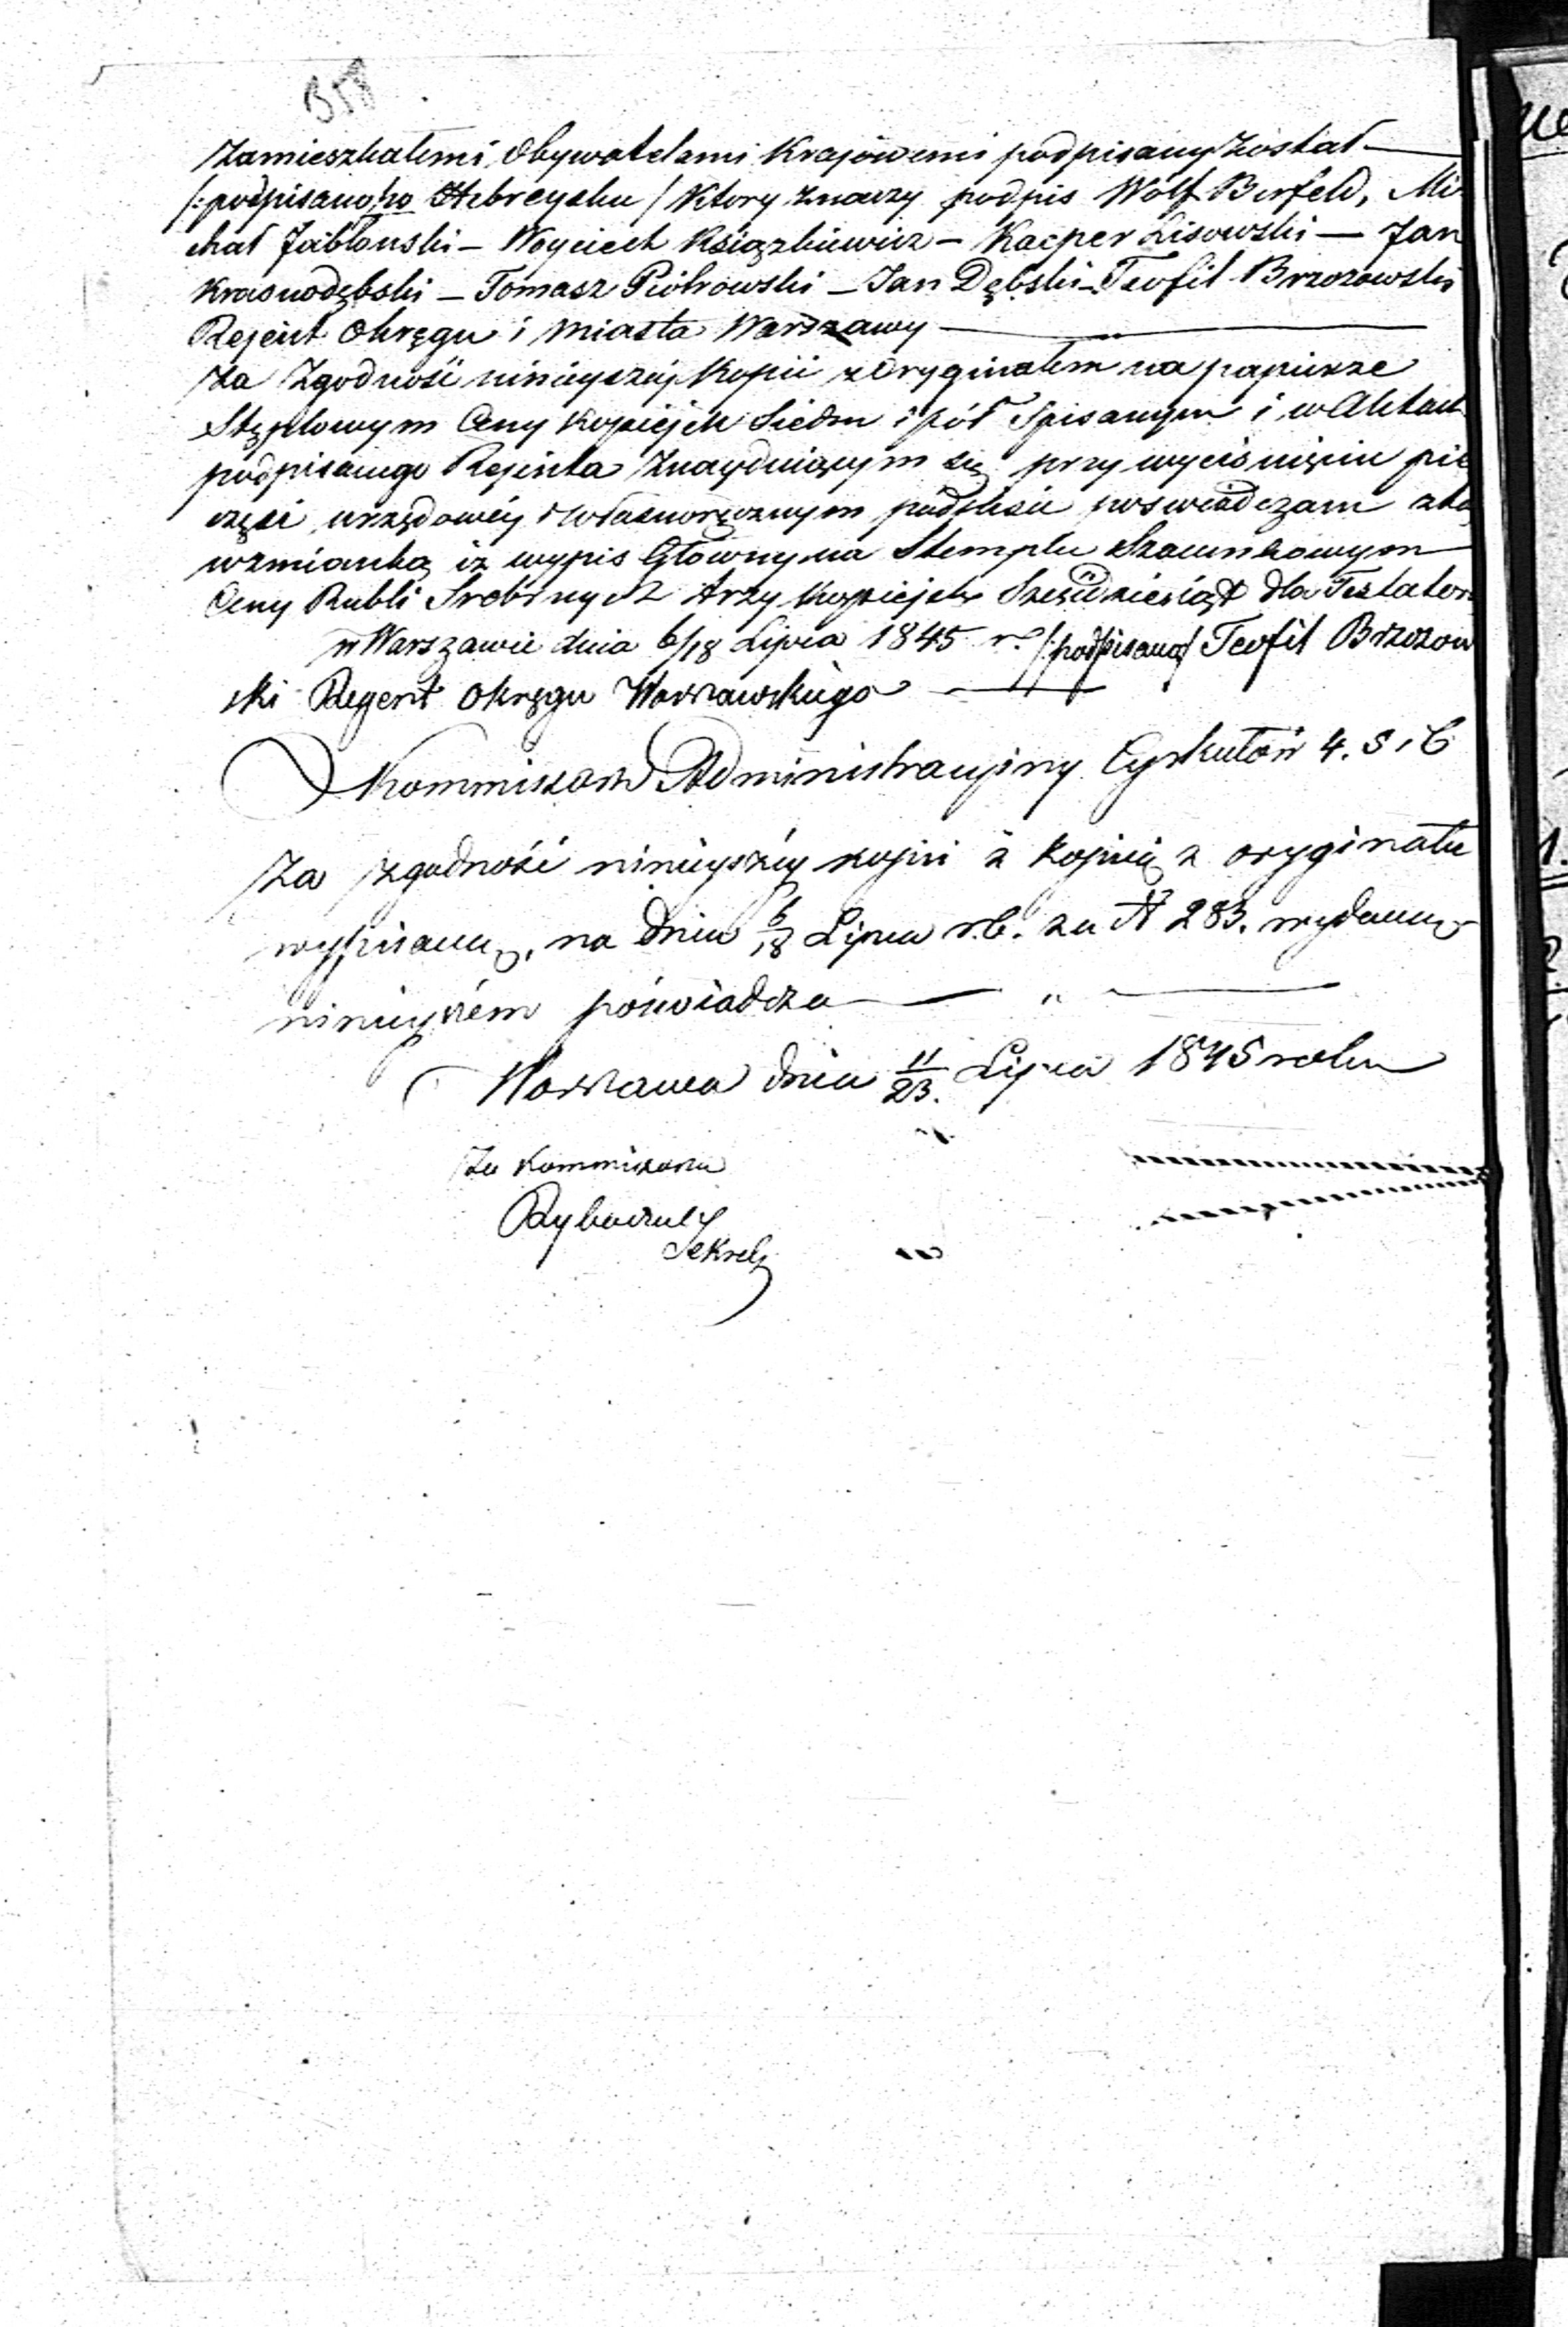 Zamieszkałemi, Obywatelami Krajowemi podpisany został —
/: podpisano / po Hebreysku / Ktory znaczy podpis Wolf Birfeld, Mi-
chał Jabłonski — Woyciech Książkiewicz — Kacper Lisowski — Jan
Krasnodębski — Tomasz Piotrowski — Jan Dębski — Teofil Brzozowski
Rejent Okręgu i Miasta Warszawy —
Za Zgodność ninieyszéj Kopii z Oryginałem na papierze
Stęplowym Ceny Kopiejek Siedm i pół Spisanym i w Aktach
podpisanego Rejenta Znayduiącym się przy wyciśnięciu pie
częci urzędowéy i własnoręcznym podpisie poswiadczam z tą
wzmianką iż wypis Główny na Stemplu Szacunkowym
Ceny Rubli Srebrnych trzy Kopiejek Sześćdziesiąt dla Testatora
w Warszawie dnia 6/18 Lipca 1845 r. /: podpisano / Teofil Brzozow
ski Regent Okręgu Warszawskiego —
Kommissarz Administracyjny Cyrkułów 4. 5 i 6
Za zgodność ninieyszéy kopii z kopią z oryginału
wypisaną, na dniu 6/18 Lipca r.b. za N 283. wydaną
ninieyszém poświadcza — " —
Warszawa dnia 11/23. Lipca 1845 roku
Za Kommissarza
Sekretz